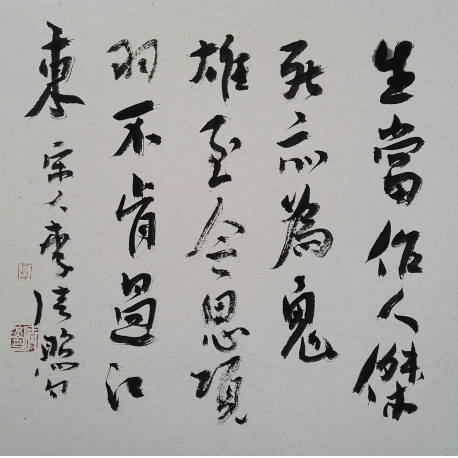 生當作人傑
死亦為鬼
雄至今思項
羽不肯過江
東 宋人李清照句